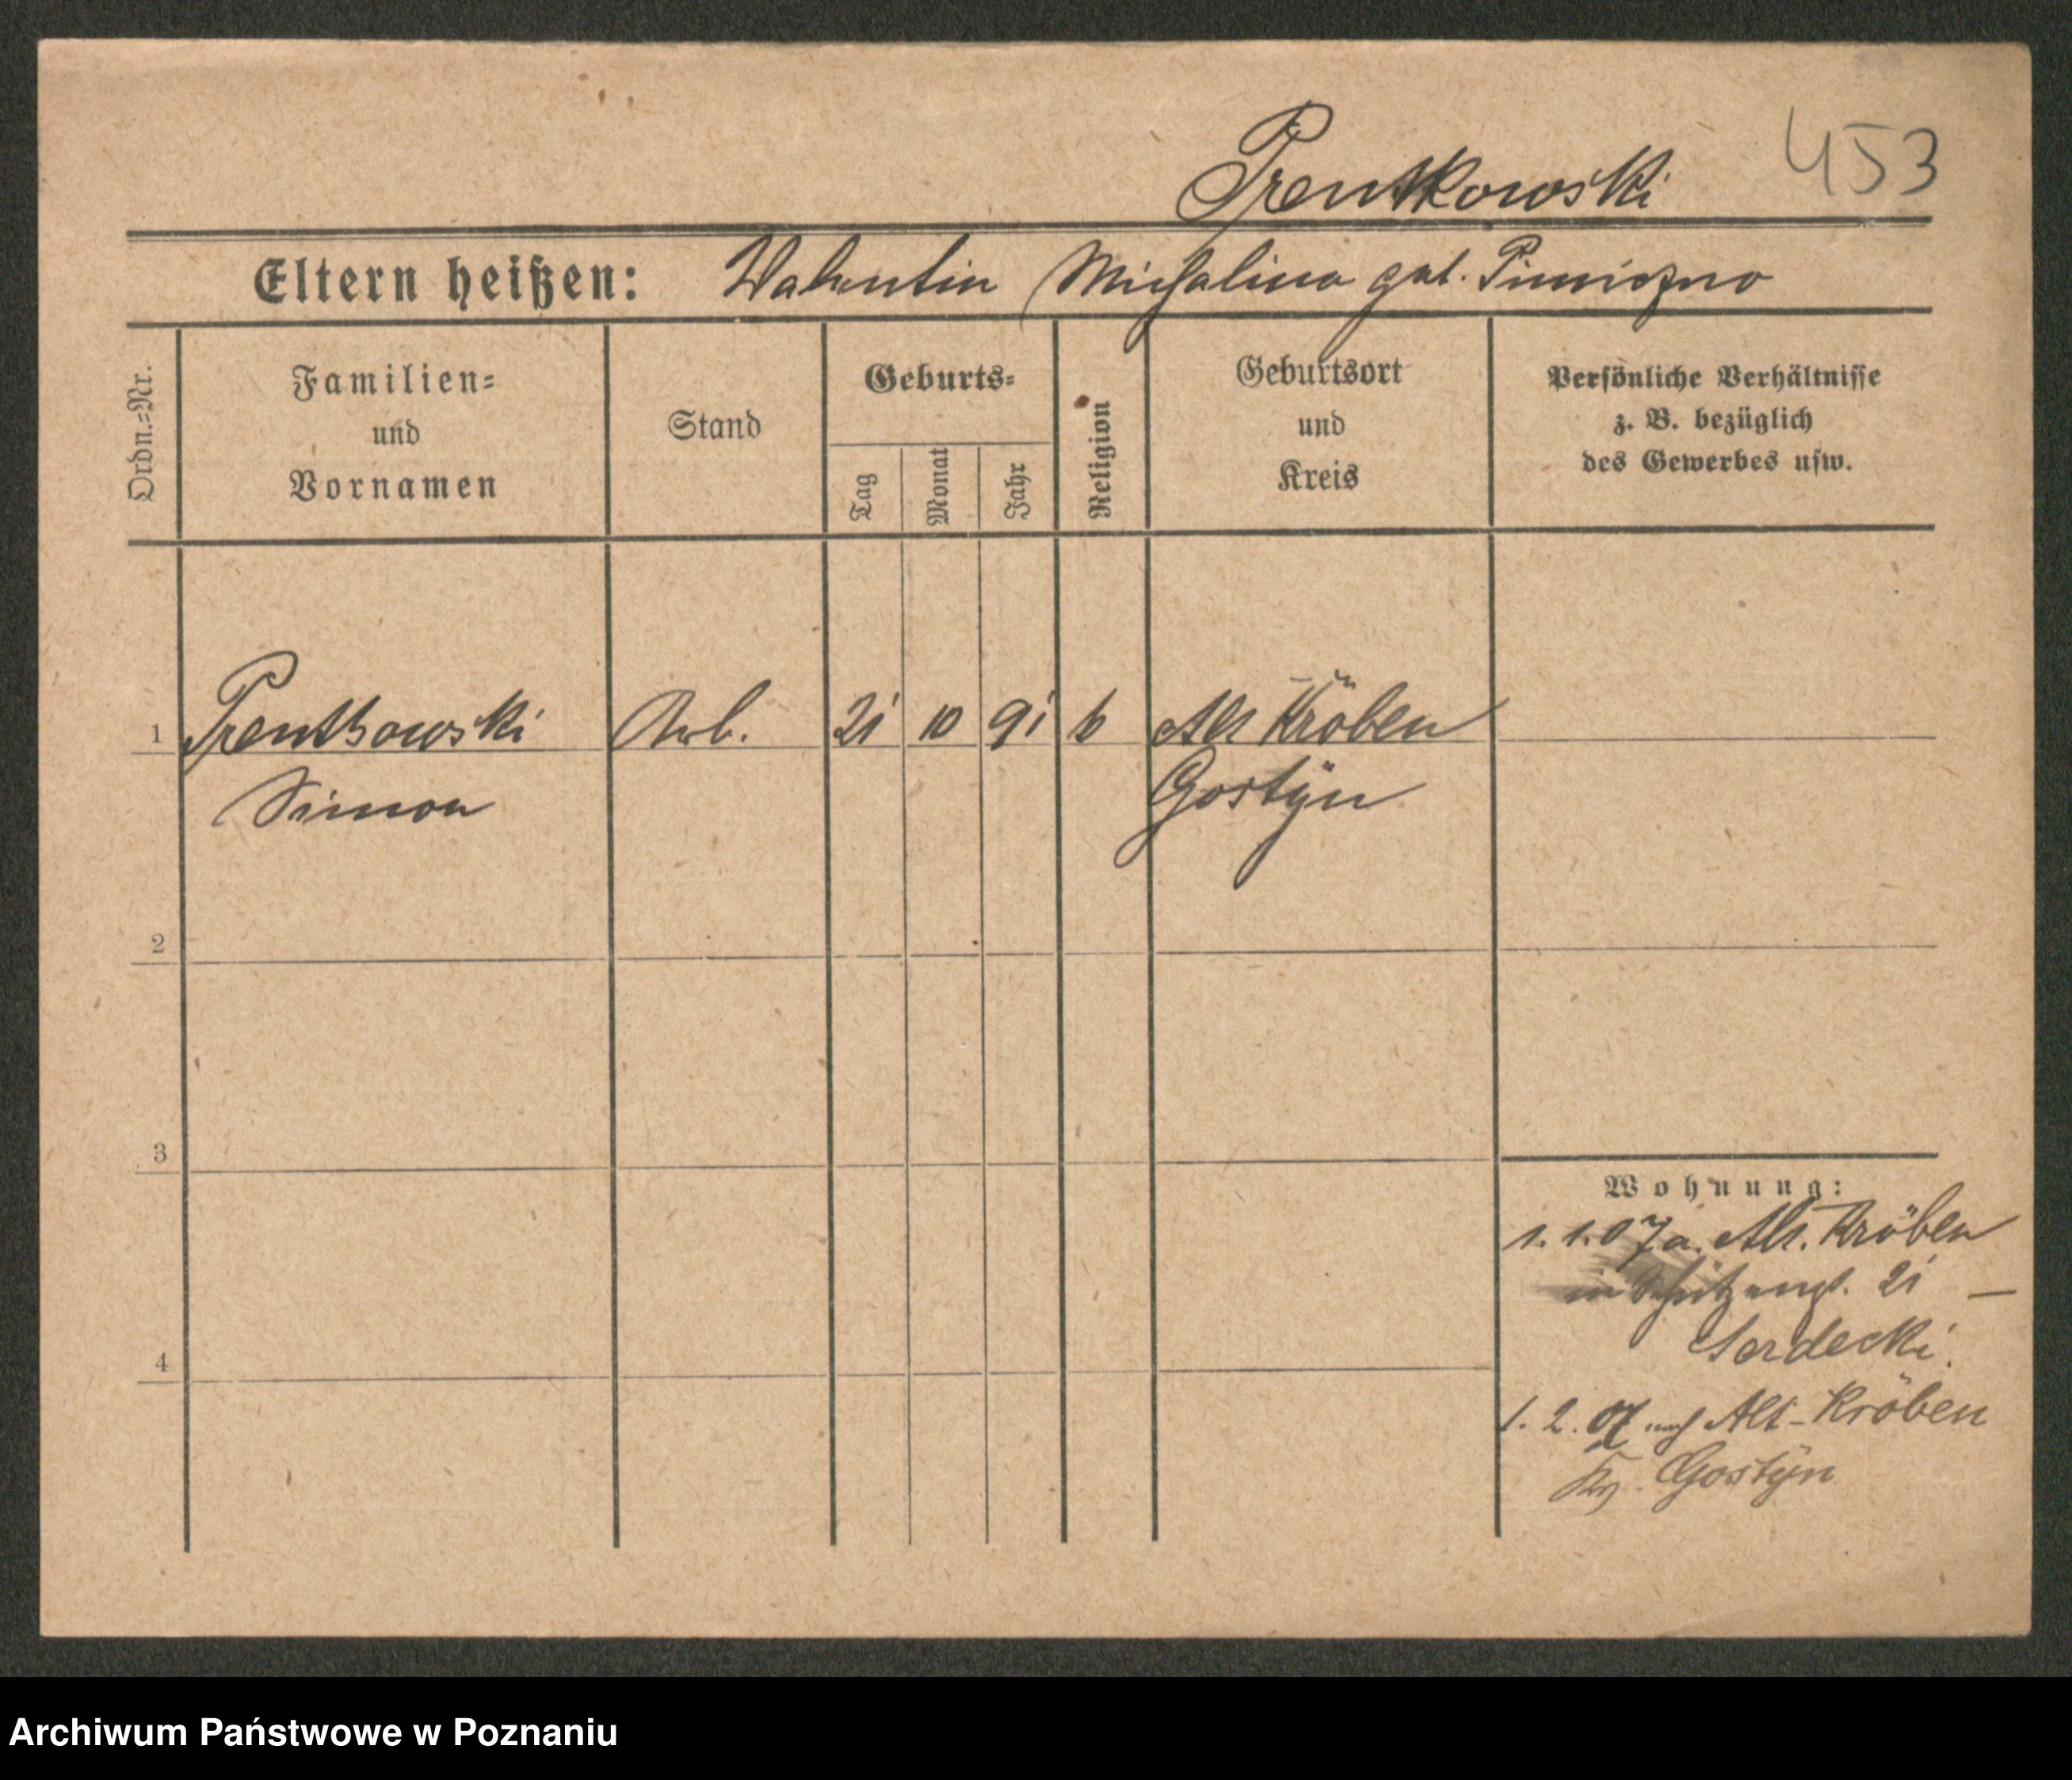 453
Prentkowski
Eltern heißen: Valentin Michalina geb.
Ordn.=Nr.
Familien=
und
Vornamen
Stand
Geburts=
Tag
Monat
Jahr
Religion
Geburtsort
und
Kreis
Persönliche Verhältnisse
z. B. bezüglich
des Gewerbes usw.
1 Prentkowski Arb. 21 10 91 k Alt Kröben
Simon Gostyn
2
3
4
Wohnung:
1. 1. 07 a. Alt. Kröben
in 21 —
Serdecki.
1. 2. 07 nach Alt-Kröben
Kr. Gostyn
Archiwum Państwowe w Poznaniu